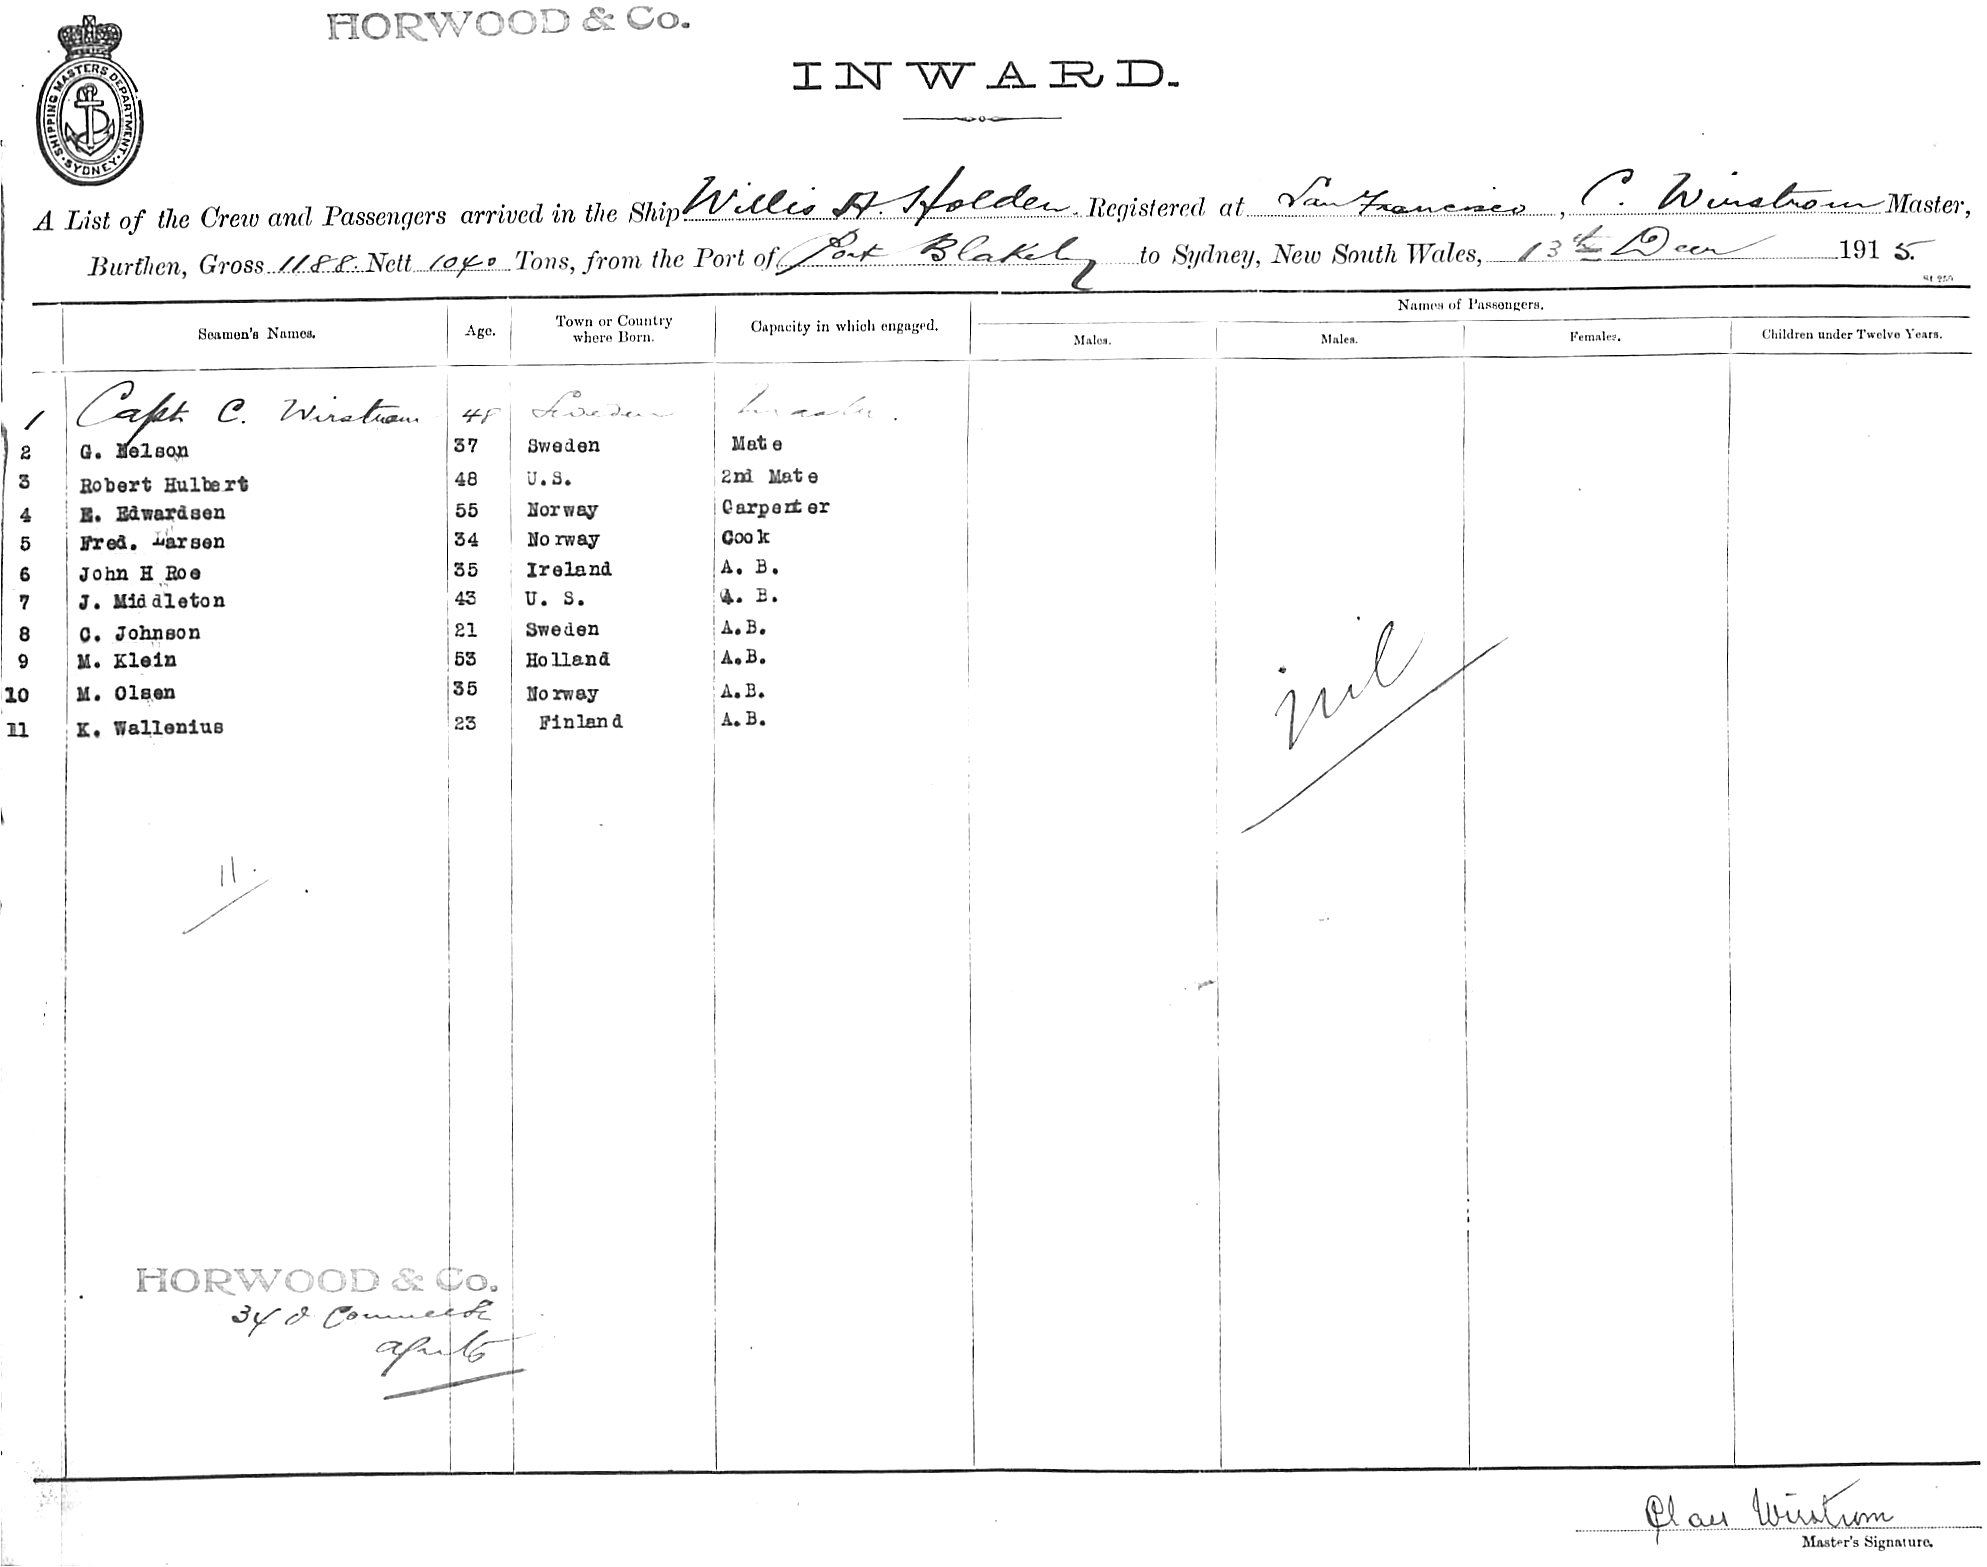 HORWOOD & Co.
SHIPPING MASTERS DEPARTMENT. SYDNEY
INWARD.
A List of the Crew and Passengers arrived in the Ship Willis A. Holden. Registered at San Francisco, C. Wirstrom Master,
Burthen, Gross 1188. Nett 1040 Tons, from the Port of Port Blakely to Sydney, New South Wales, 13th Decr 1915.
Names of Passengers.
Seamen's Names. Age. Town or Country where Born. Capacity in which engaged. Males. Males. Females. Children under Twelve Years.
1 Capt C. Wirstrom 48 Sweden Master.
2 G. Nelson 37 Sweden Mate
3 Robert Hulbert 48 U.S. 2nd Mate
4 E. Edwardsen 55 Norway Carpenter
5 Fred. Larsen 34 Norway Cook
6 John H Roe 35 Ireland A. B.
7 J. Middleton 43 U. S. A. B.
8 C. Johnson 21 Sweden A.B.
9 M. Klein 53 Holland A.B.
10 M. Olsen 35 Norway A.B.
11 K. Wallenius 23 Finland A.B.
nil
11.
HORWOOD & Co.
34 O Connell St
Agents
Claes Wirstrom
Master's Signature.